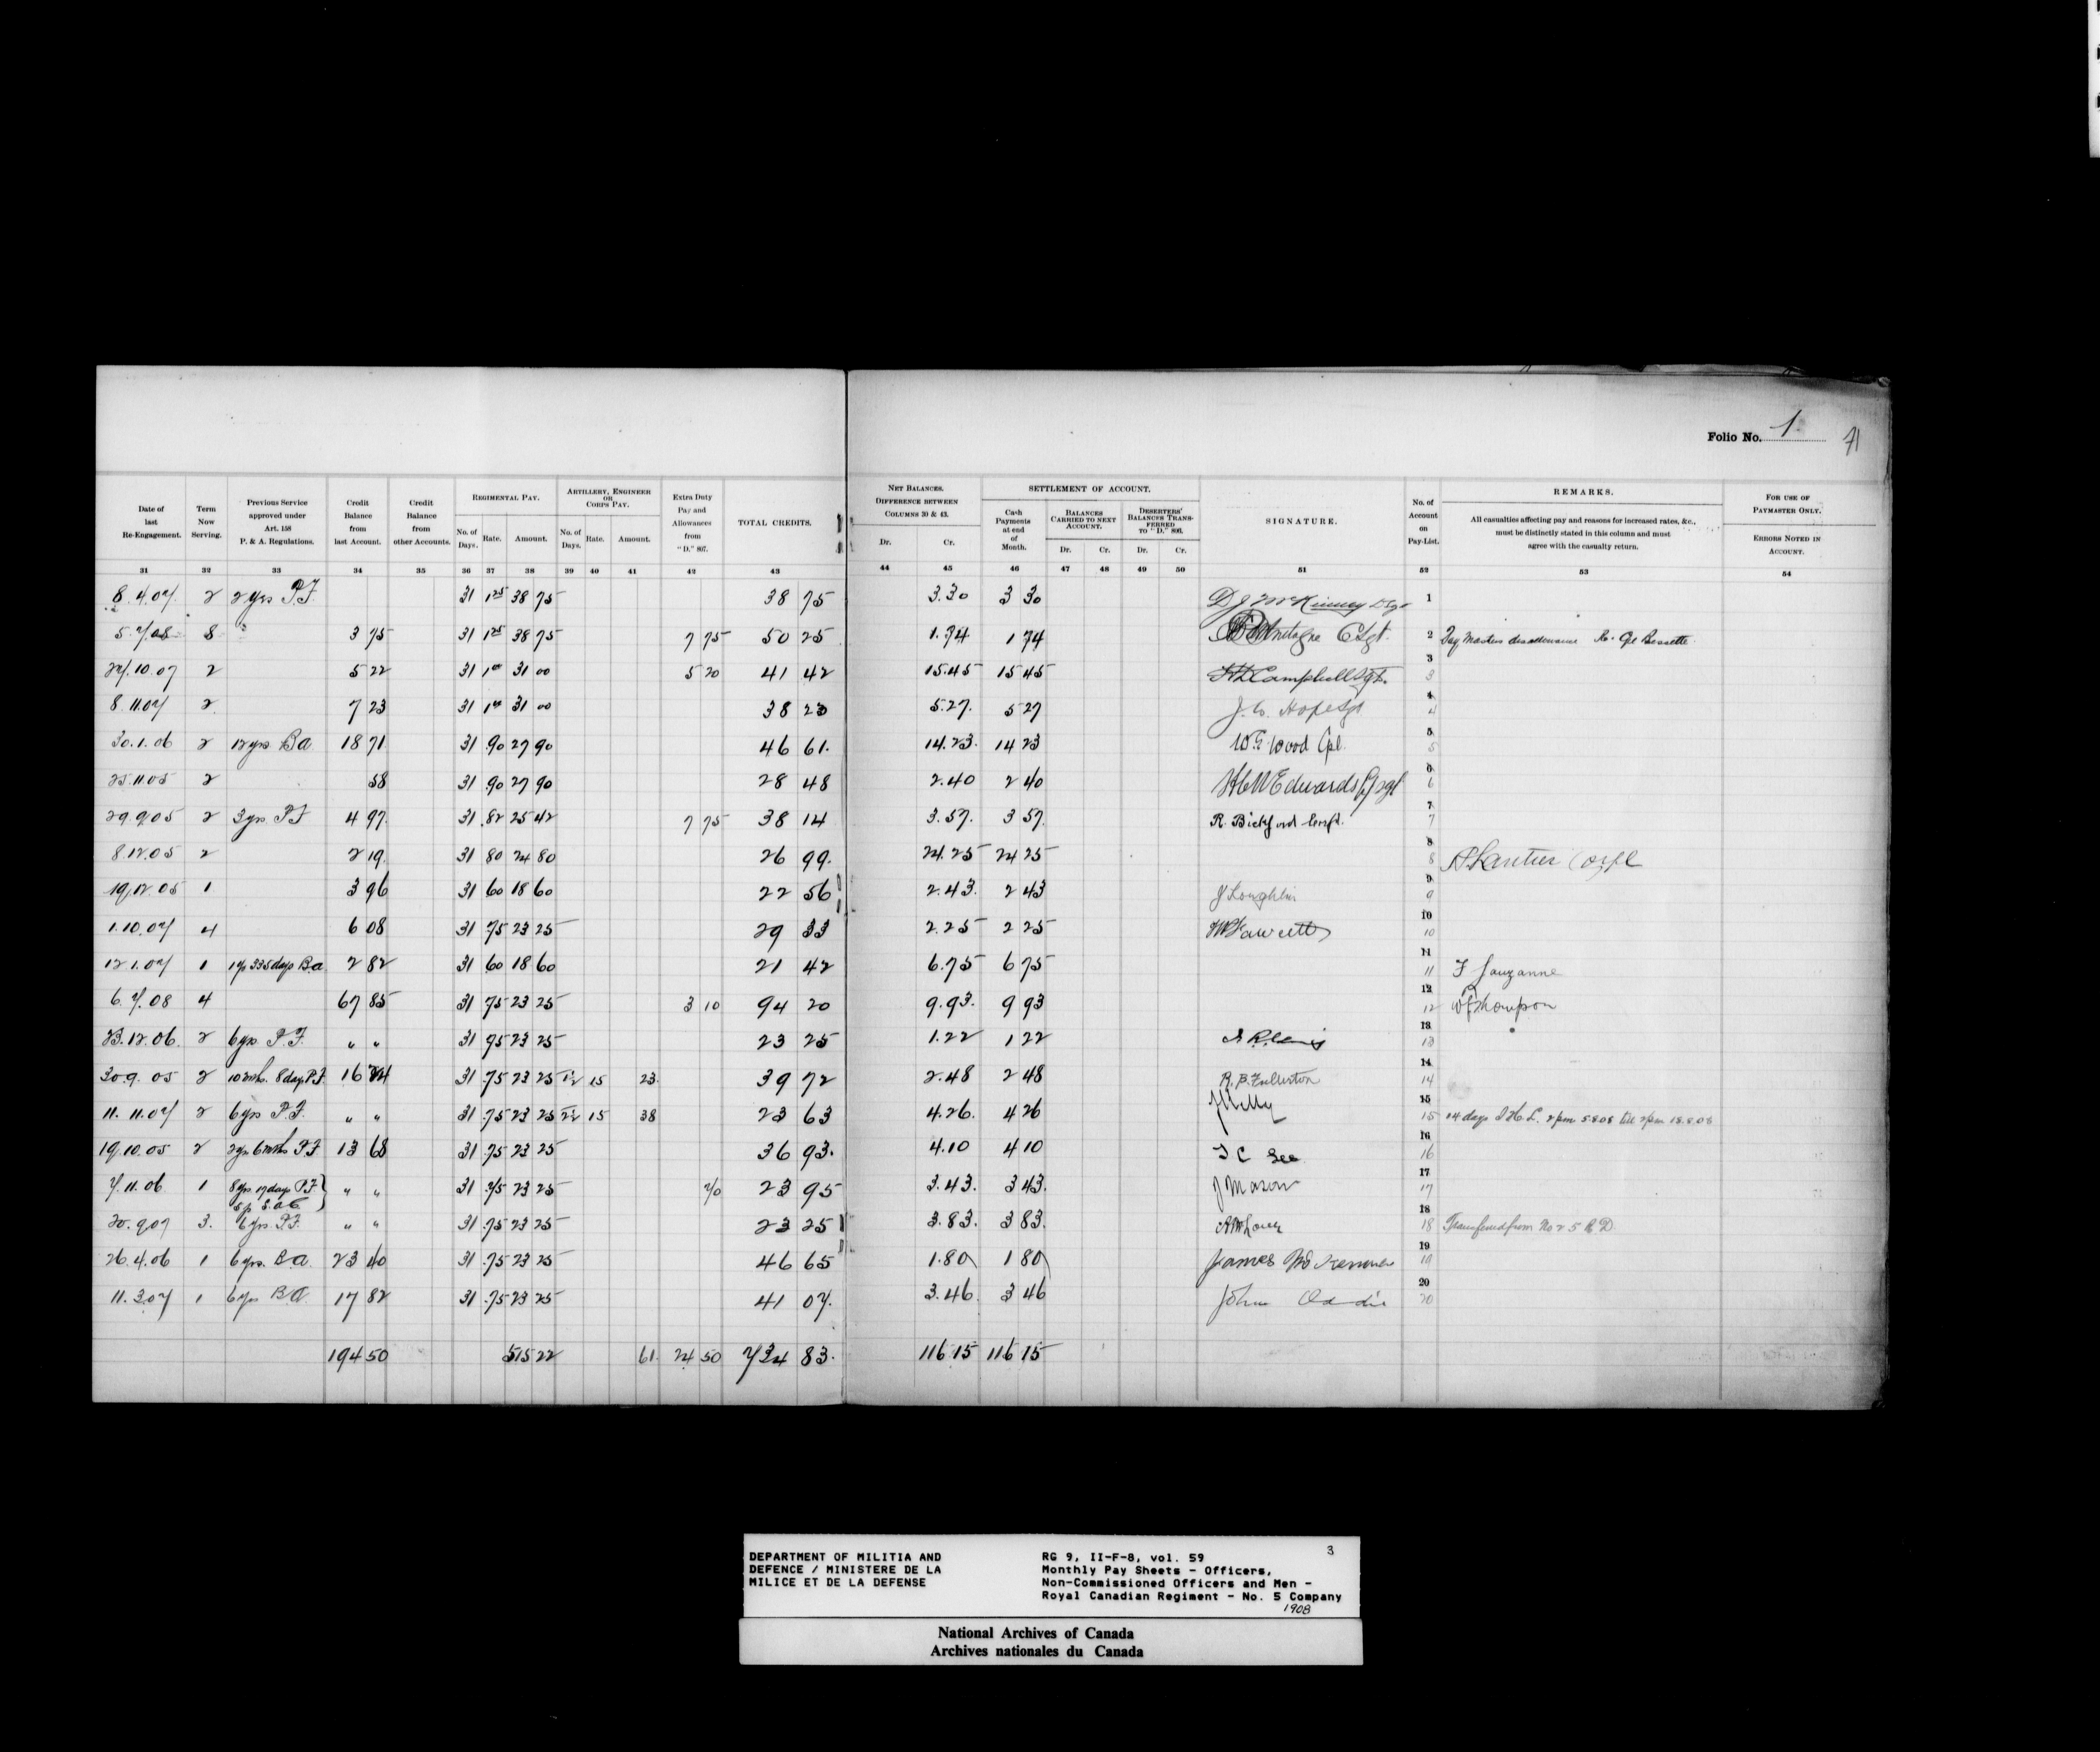 Folio No. 1. 71
Date of last Re-Engagement. Term Now Serving. Previous Service approved under Art. 158 P. & A. Regulations. Credit Balance from last Account. Credit Balance from other Accounts. REGIMENTAL PAY. No. of Days. Rate. Amount. ARTILLERY, ENGINEER OR CORPS PAY. No. of Days. Rate. Amount. Extra Duty Pay and Allowances from "D." 807. TOTAL CREDITS. NET BALANCES. DIFFERENCE BETWEEN COLUMNS 30 & 43. Dr. Cr. SETTLEMENT OF ACCOUNT. Cash Payments at end of Month. BALANCES CARRIED TO NEXT ACCOUNT. Dr. Cr. DESERTERS' BALANCES TRANSFERRED TO "D." 806. Dr. Cr. SIGNATURE. No. of Account on Pay-List. REMARKS. All casualties affecting pay and reasons for increased rates, &c., must be distinctly stated in this column and must agree with the casualty return. FOR USE OF PAYMASTER ONLY. ERRORS NOTED IN ACCOUNT.
31 32 33 34 35 36 37 38 39 40 41 42 43 44 45 46 47 48 49 50 51 52 53 54
8.4.07 2 2 yrs P.F. 31 1 25 38 75 38 75 3.30 3 30 D J McKinney 1
5.7.08 8 3 75 31 1 25 38 75 7 75 50 25 1.74 1 74 CSgt. 2 Re- Cpl Bessette
24.10.07 2 5 22 31 1 00 31 00 5 20 41 42 15.45 15 45 Campbell Sgt. 3
8.11.07 2 7 23 31 1 00 31 00 38 23 5.27. 5 27 Hope Sgt 4
30.1.06 2 12 yrs B.A 18 71 31 .90 27 90 46 61. 14.23. 14 23 W.G. Wood Cpl. 5
25.11.05 2 58 31 .90 27 90 28 48 2.40 2 40 Edwards 6
29.9.05 2 3 yrs. P.F 4 97. 31 .82 25 42 7 75 38 14 3.57. 3 57. R. Bickford 7
8.12.05 2 2 19. 31 80 24 80 26 99. 24.25 24 25 8 Lantier Corpl
19.12.05 1 3 96 31 60 18 60 22 56 2.43. 2 43 J Loughlin 9
1.10.07 4 6 08 31 75 23 25 29 33 2.25 2 25 Fawcett 10
12.1.07 1 1 yr 335 days B.a 2 82 31 60 18 60 21 42 6.75 6 75 11 F Lauzanne
6.7.08 4 67 85 31 .75 23 25 3 10 94 20 9.93. 9 93 12 Thompson
23.12.06. 2 6 yrs. P.F. " " 31 75 23 25 23 25 1.22 1 22 13
30.9.05 2 10 mths. 8 days P.F. 16 24 31 .75 23 25 15 23. 39 72 2.48 2 48 R.B. Fullerton 14
11.11.07 2 6 yrs P.F. " " 31 .75 23 25 15 38 23 63 4.26. 4 26 15 14 days I.H.L. 2 pm 5.8.08 till 2 pm 18.8.08
19.10.05 2 2 yrs 6 mths P.F 13 68 31 .75 23 25 36 93. 4.10 4 10 See 16
7.11.06 1 8 yrs 17 days P.F. " " 31 .75 23 25 70 23 95 3.43. 3 43. J Mason 17
20.9.07 3. 6 yrs. P.F. " " 31 .75 23 25 23 25 3.83. 3 83. 18 Transferred from No 2 5 R.D.
26.4.06 1 6 yrs. B.A. 23 40 31 .75 23 25 46 65 1.80 1 80 James 19
11.3.07 1 6 yrs B.A. 17 82 31 .75 23 25 41 07. 3.46. 3 46 John 20
194 50 515 22 61. 24 50 734 83. 116 15 116 15
DEPARTMENT OF MILITIA AND DEFENCE / MINISTERE DE LA MILICE ET DE LA DEFENSE
RG 9, II-F-8, vol. 59 3
Monthly Pay Sheets - Officers,
Non-Commissioned Officers and Men -
Royal Canadian Regiment - No. 5 Company
1908
National Archives of Canada
Archives nationales du Canada